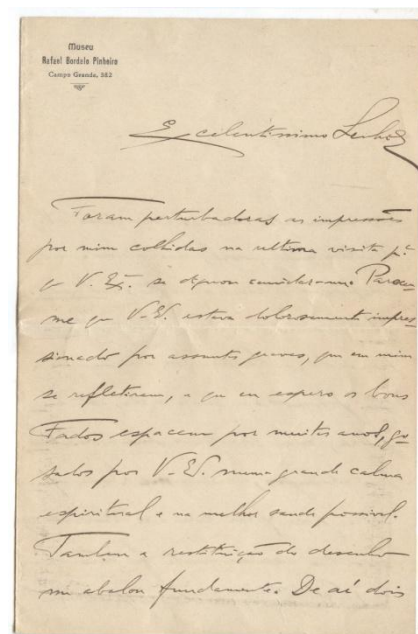 Museu
Rafael Bordalo Pinheiro
Campo Grande, 382
Excelentissimo Senhor
Foram perturbadoras as impressões
por mim colhidas na ultima visita pª
q V. Exª. se dignou convidar-me. Pareceu
me que V. Ex. estava dolorosamente impres
sionado por assuntos graves, que em mim
se refletiram, e que eu espero os bons
Fados espacem por muitos anos, go
sados por V. Ex. numa grande calma
espiritual e na melhor saude possivel.
Tambem a restituição do desenho
me abalou fundamente. De aí dois